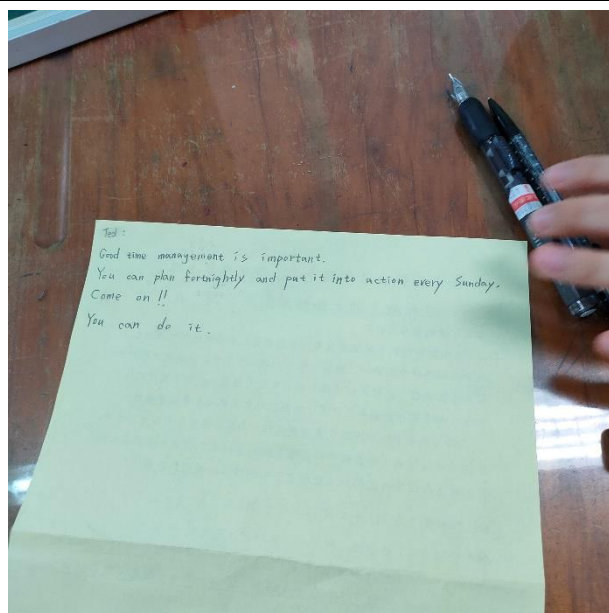 Test:
Good time management is important.
You can plan fortnightly and put it into action every Sunday.
Come on!!
You can do it.